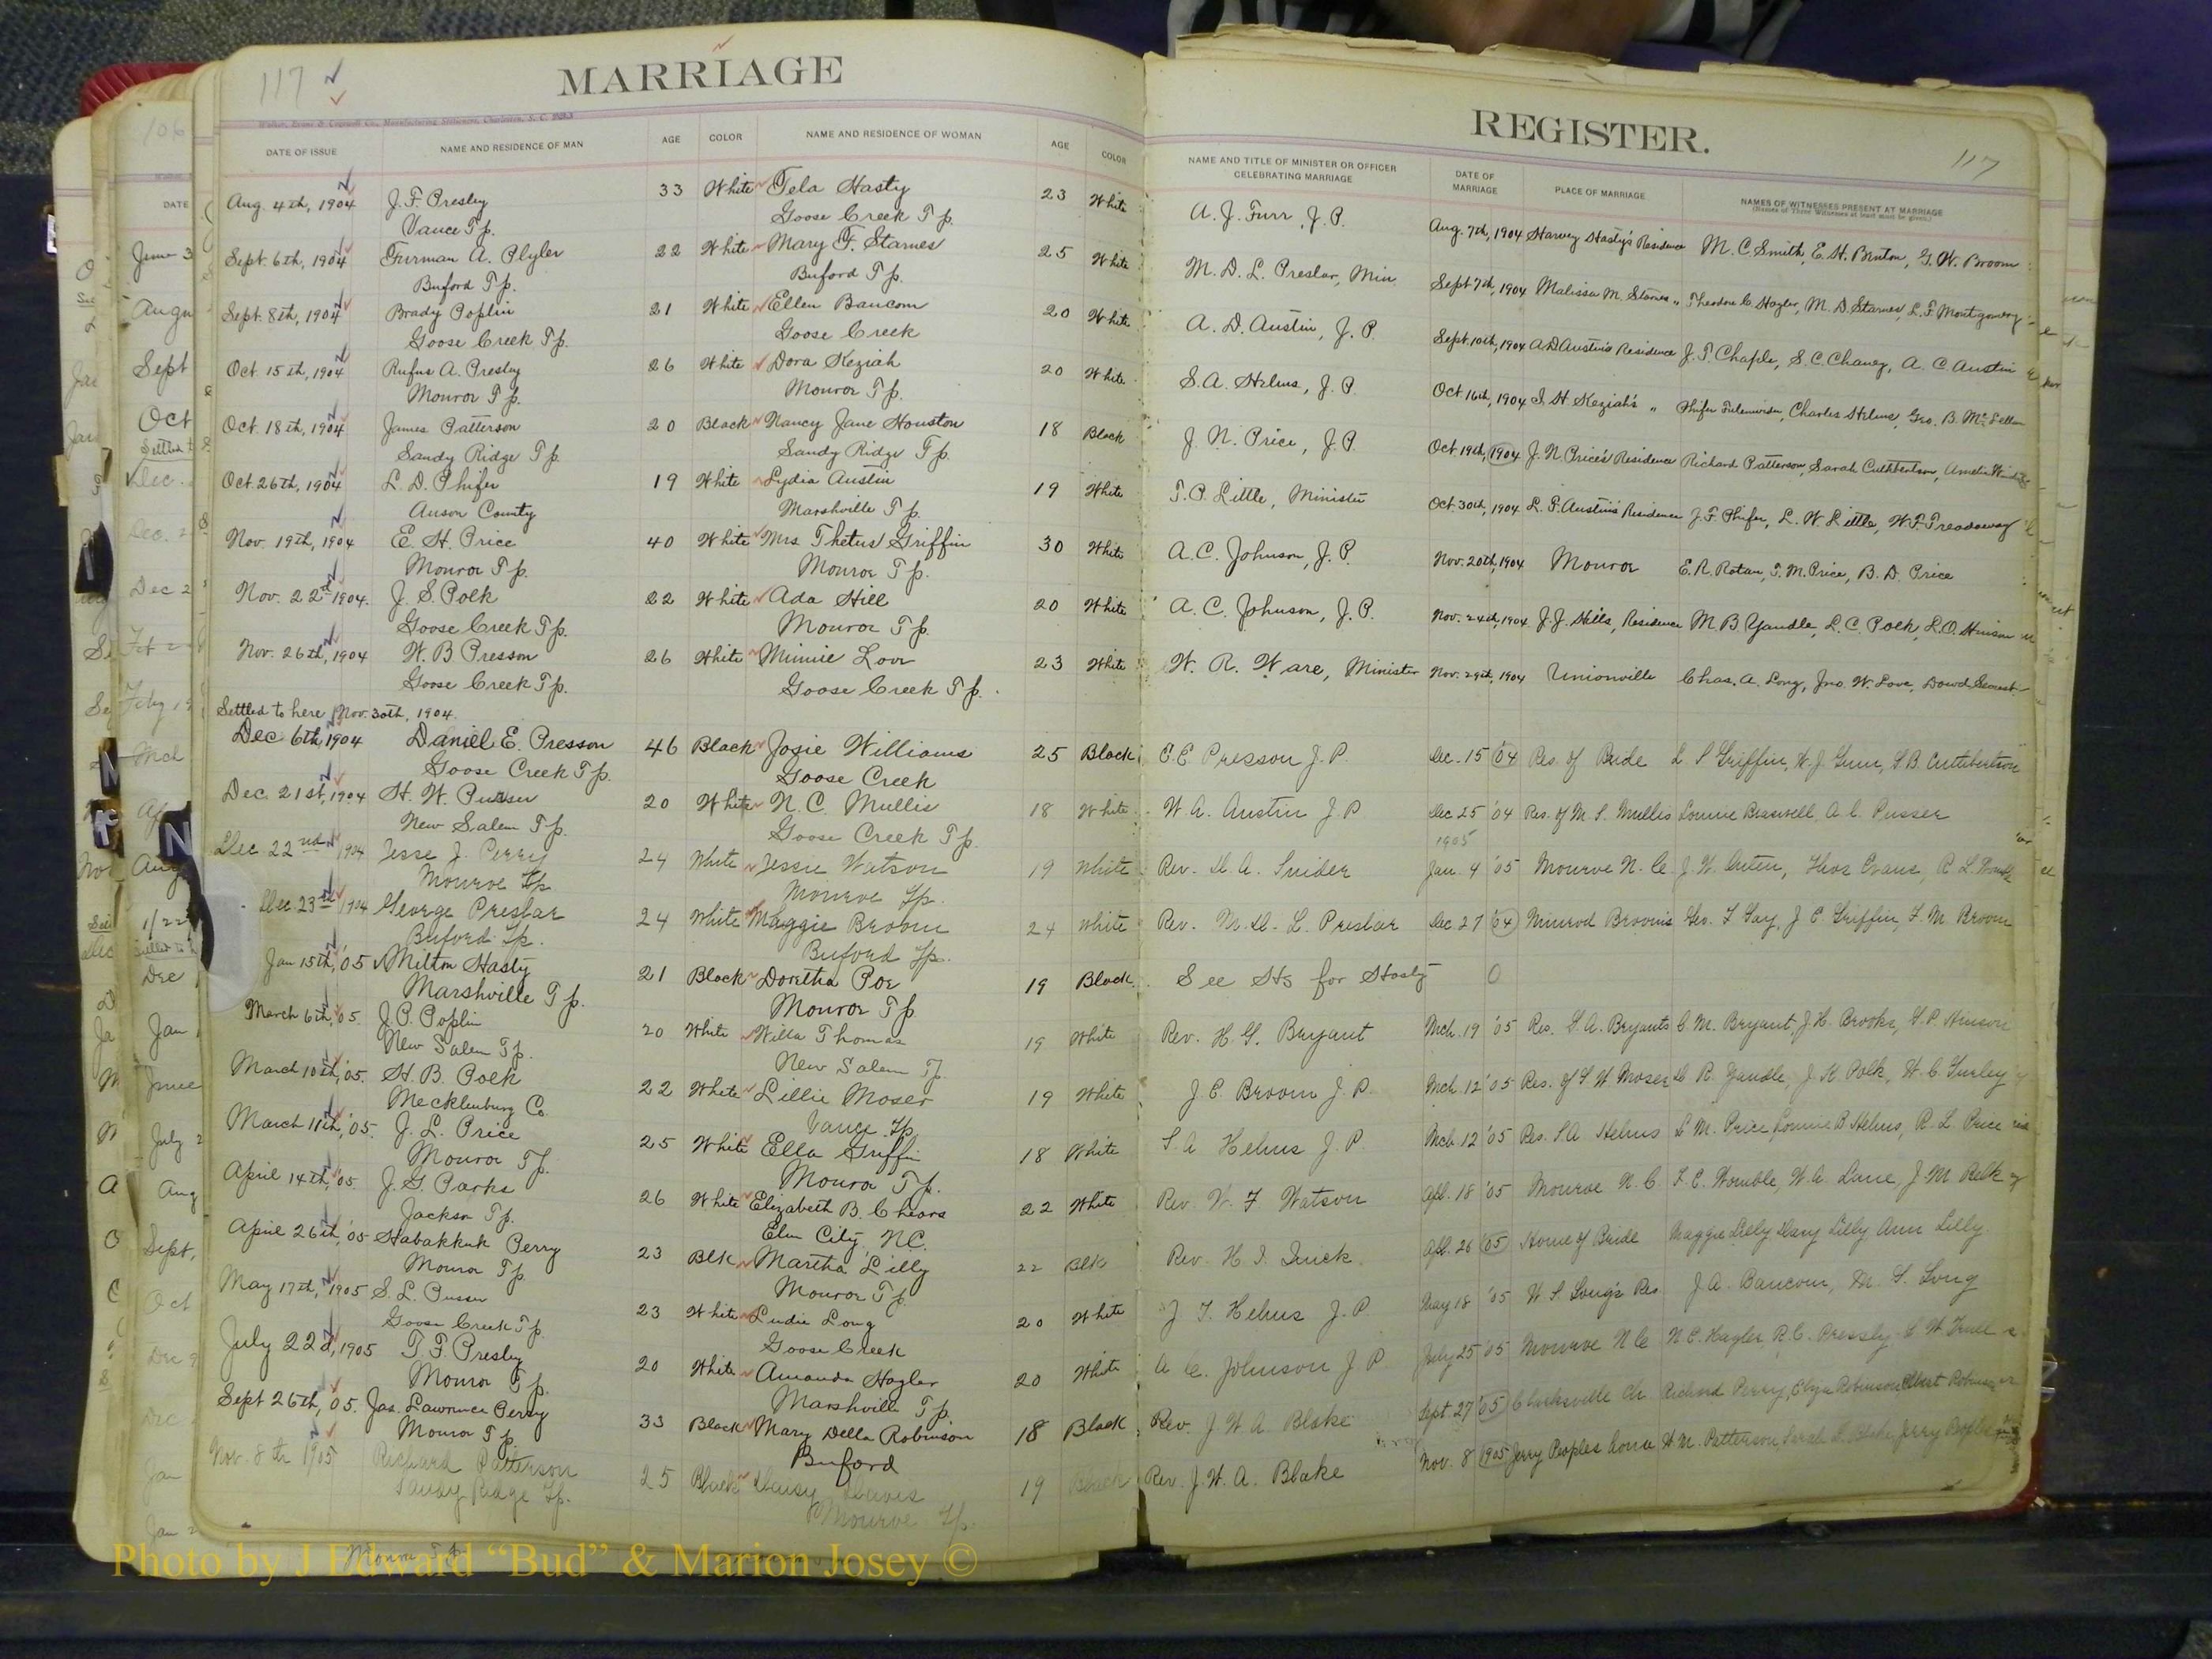 117
MARRIAGE
DATE OF ISSUE NAME AND RESIDENCE OF MAN AGE COLOR NAME AND RESIDENCE OF WOMAN AGE COLOR
Aug. 4th, 1904 J. F. Presley 33 White Tela Hasty 23 White
Vance Tp. Goose Creek Tp.
Sept. 6th, 1904 Furman A. Plyler 22 White Mary F. Starnes 25 White
Buford Tp. Buford Tp.
Sept. 8th, 1904 Brady Poplin 21 White Ellen Baucom 20 White
Goose Creek Tp. Goose Creek
Oct. 15th, 1904 Rufus A. Presley 26 White Dora Keziah 20 White
Monroe Tp. Monroe Tp.
Oct. 18th, 1904 James Patterson 20 Black Nancy Jane Houston 18 Black
Sandy Ridge Tp. Sandy Ridge Tp.
Oct. 26th, 1904 L. D. Phifer 19 White Lydia Austin 19 White
Anson County Marshville Tp.
Nov. 19th, 1904 E. H. Price 40 White Mrs. Thetus Griffin 30 White
Monroe Tp. Monroe Tp.
Nov. 22nd 1904. J. S. Polk 22 White Ada Hill 20 White
Goose Creek Tp. Monroe Tp.
Nov. 26th, 1904 W. B. Presson 26 White Minnie Love 23 White
Goose Creek Tp. Goose Creek Tp.
Settled to here Nov. 30th, 1904.
Dec 6th, 1904 Daniel E. Presson 46 Black Josie Williams 25 Black
Goose Creek Tp. Goose Creek
Dec. 21st, 1904 H. W. Pusser 20 White N. C. Mullis 18 White
New Salem Tp. Goose Creek Tp.
Dec 22nd 1904 Jesse J. Perry 24 White Jessie Watson 19 White
Monroe Tp. Monroe Tp.
Dec. 23rd 1904 George Preslar 24 White Maggie Broom 24 White
Buford Tp. Buford Tp.
Jan 15th, '05 Milton Hasty 21 Black Doretha Poe 19 Black
Marshville Tp. Monroe Tp.
March 6th, '05. J. P. Poplin 20 White Willa Thomas 19 White
New Salem Tp. New Salem Tp.
March 10th, '05. H. B. Polk 22 White Lillie Moser 19 White
Mecklenburg Co. Vance Tp.
March 11th, '05. J. L. Price 25 White Ella Griffin 18 White
Monroe Tp. Monroe Tp.
April 14th, '05. J. G. Parks 26 White Elizabeth B. Chears 22 White
Jackson Tp. Elm City, N.C.
April 26th, '05 Habakkuk Perry 23 Blk Martha Lilly 22 Blk
Monroe Tp. Monroe Tp.
May 17th, 1905 S. L. Pusser 23 White Ludie Long 20 White
Goose Creek Tp. Goose Creek
July 22d, 1905 T. F. Presley 20 White Amanda Hagler 20 White
Monroe Tp. Marshville Tp.
Sept 26th, '05. Jas. Lawrence Perry 33 Black Mary Della Robinson 18 Black
Monroe Tp. Buford
Nov. 8th 1905 Richard Patterson 25 Black Daisy Davis 19 Black
Sandy Ridge Tp. Monroe Tp.
REGISTER.
117
NAME AND TITLE OF MINISTER OR OFFICER CELEBRATING MARRIAGE DATE OF MARRIAGE PLACE OF MARRIAGE NAMES OF WITNESSES PRESENT AT MARRIAGE
(Names of Three Witnesses at least must be given.)
A. J. Furr, J. P. Aug. 7th, 1904 Harvey Hasty's Residence M. C. Smith, E. H. Benton, G. W. Broom
M. D. L. Preslar, Min Sept 7th, 1904 Malissa M. Starnes " Theodore C. Hagler, M. D. Starnes, L. F. Montgomery
A. D. Austin, J. P. Sept. 10th, 1904 A. D Austin's Residence J. T. Chaple, S. C. Chaney, A. C. Austin
S. A. Helms, J. P. Oct 16th, 1904 S. H. Keziah's " Charles Helms, Geo. B. McLellan
J. N. Price, J. P. Oct 19th, 1904 J. N. Price's Residence Richard Patterson, Sarah Cuthbertson
T. P. Little, Minister Oct. 30th, 1904 L. P. Austin's Residence J. F. Phifer, L. W. Little, W. F. Treadaway
A. C. Johnson, J. P. Nov. 20th, 1904 Monroe E. R. Rotan, T. M. Price, B. D. Price
A. C. Johnson, J. P. Nov. 24th, 1904 J. J. Hills, Residence M. B. Yandle, L. C. Polk, L. O. Hinson
W. R. Ware, Minister Nov. 29th, 1904 Unionville Chas. A. Long, Jno. W. Love, Dowd
E. E Presson J. P. Dec. 15 '04 Res of Bride L S Griffin, W. J. Gunn, S. B. Cuthbertson
W. A. Austin J. P Dec 25 '04 Res. of M. S. Mullis Lonnie Braswell, A. C. Pusser
1905
Rev. D. A. Snider Jan. 4 '05 Monroe N. C. J. W. Outen, Thos Evans, R. L.
Rev. M. D. L. Preslar Dec 27 '04 Nimrod Broom's Geo. T. Gay, J. C. Griffin, F. M. Broom
See Sts for Hasty 0
Rev. H. G. Bryant Mch. 19 '05 Res. S. A. Bryants C. M. Bryant, J. H. Brooks, S. P. Hinson
J. C. Broom J. P. Mch. 12 '05 Res. of S. W Moser D. R. Yandle, J. K Polk, W. C Gurley
S. A Helms J. P. Mch. 12 '05 Res. S. A Helms L. M. Price, Lonnie B Helms, R. L. Price
Rev. W. F Watson Apl. 18 '05 Monroe N. C. T. C. Womble, W. A. Lane, J. M Belk
Rev. H. I. Quick. Apl. 26 '05 Home of Bride Maggie Lilly Mary Lilly Ann Lilly
J. T. Helms J. P May 18 '05 W. S Long's Res J. A. Baucom, M. S. Long
A C. Johnson J. P. July 25 '05 Monroe N C N. C. Hagler, R. C. Pressly, C. W. Trull
Rev. J. W. A. Blake Sept. 27 '05 Clarksville Ch Richard Perry, Eliza Robinson Albert Robinson
Rev. J. W. A. Blake Nov. 8 1905 Jerry Peoples home H. M. Patterson, Sarah F. Blake, Jerry Peoples
Photo by J Edward “Bud” & Marion Josey ©